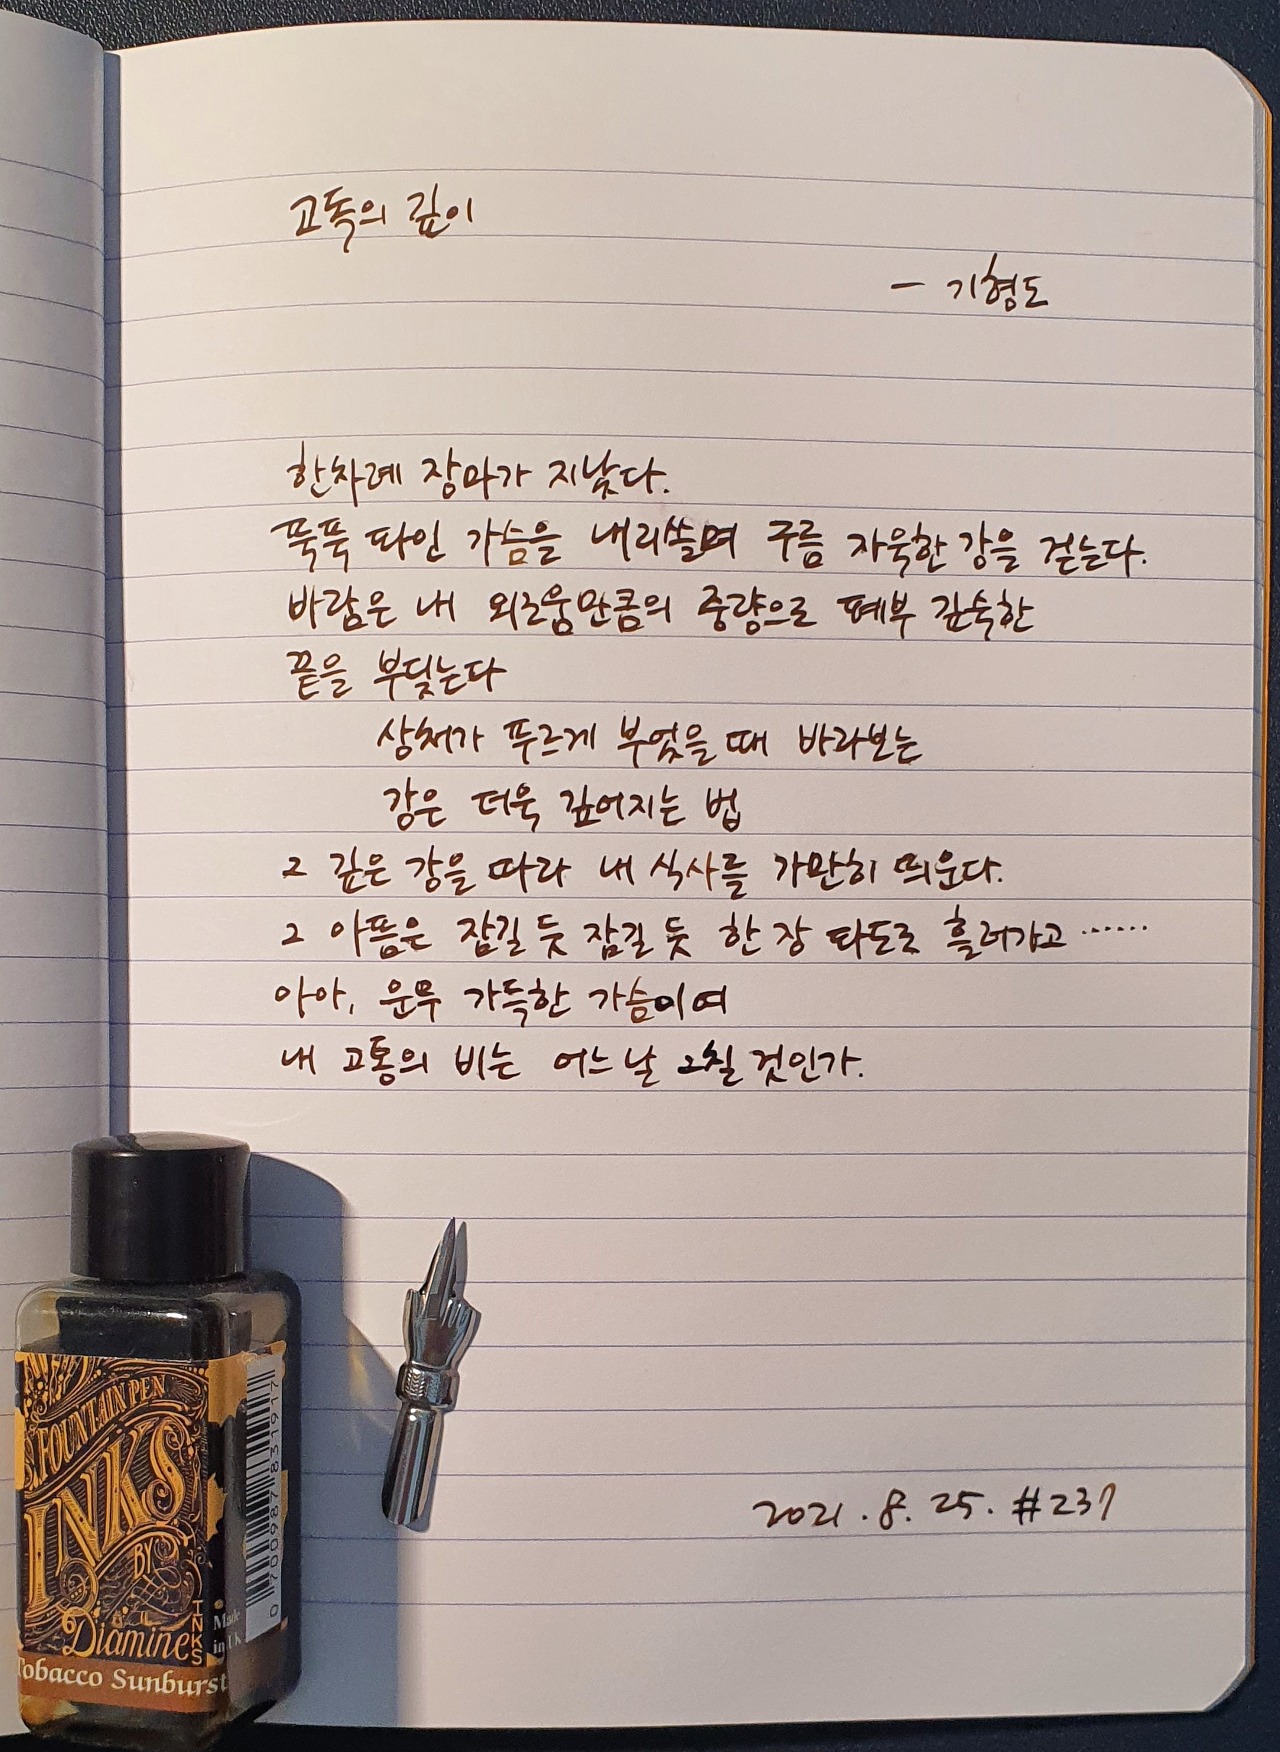 고독의 깊이
- 기형도
한차례 장마가 지났다.
푹푹 파인 가슴을 내리쓸며 구름 자욱한 강을 걷는다.
바람은 내 외로움만큼의 중량으로 폐부 깊숙한
끝을 부딪는다
상처가 푸르게 부었을 때 바라보는
강은 더욱 깊어지는 법
그 깊은 강을 따라 내 식사를 가만히 띄운다.
그 아픔은 잠길 듯 잠길 듯 한 장 파도로 흘러가고……
아아, 운무 가득한 가슴이여
내 고통의 비는 어느 날 그칠 것인가.
2021. 8. 25. #237
FOUNTAIN PEN
INKS
BY
Diamine
INKS
Made
in UK
Tobacco Sunburst
0 700987 831917